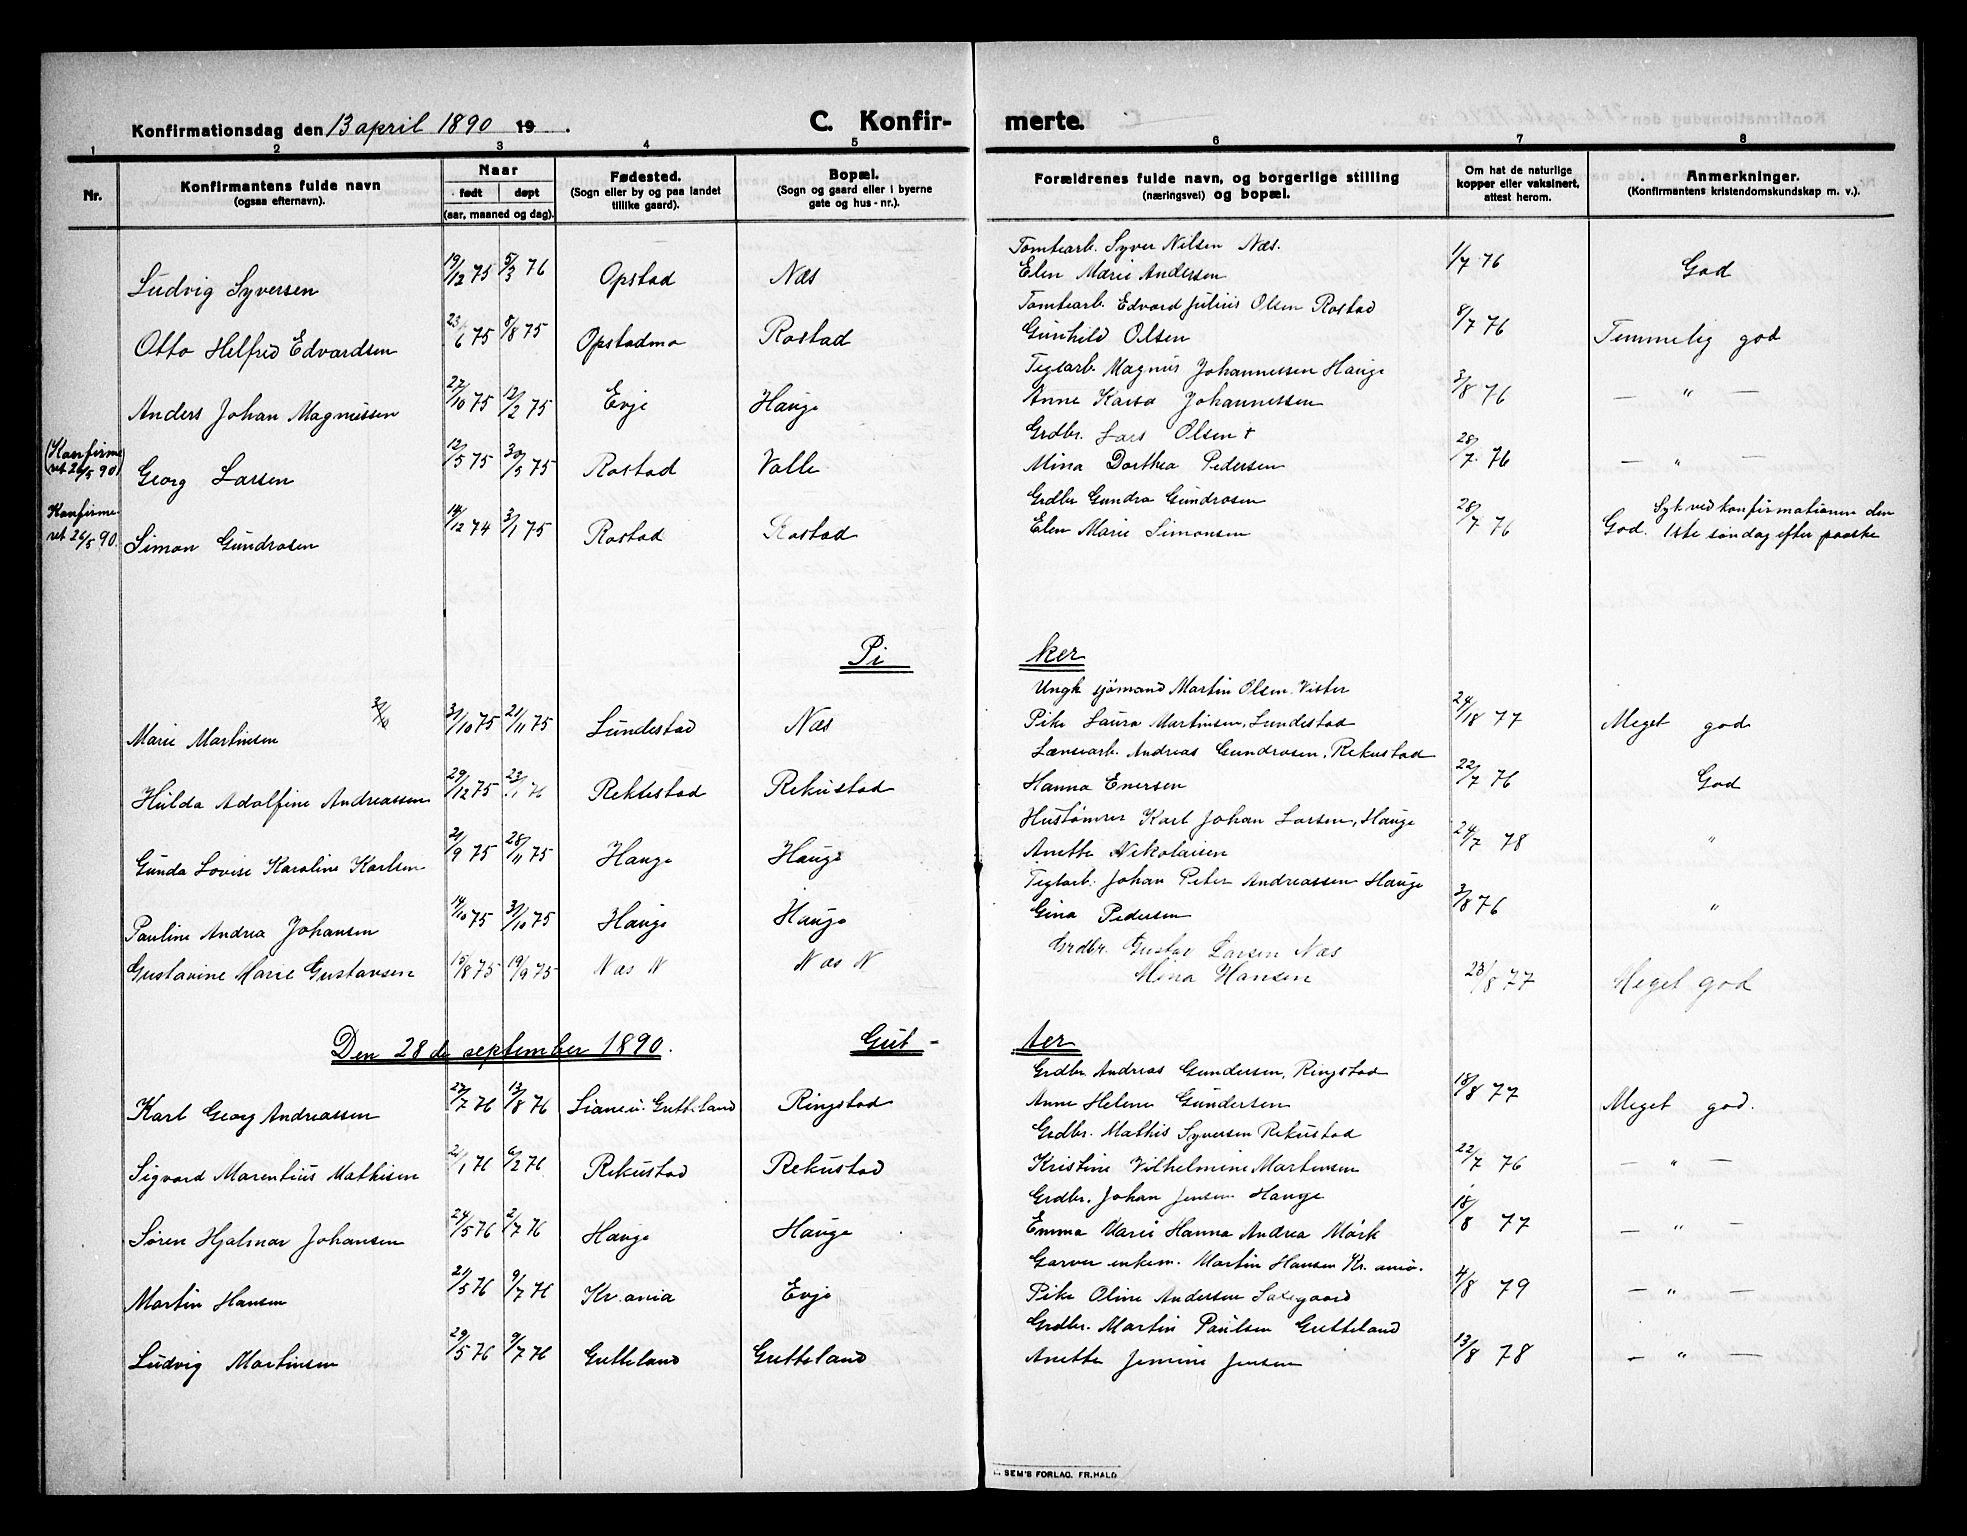 Konfirmationsdag den 13 april 1890 19 . C. Konfir- merte.
1 2 3 4 5 6 7 8
Nr. Konfirmantens fulde navn (ogsaa efternavn). Naar født døpt (aar, maaned og dag). Fødested. (Sogn eller by og paa landet tillike gaard). Bopæl. (Sogn og gaard eller i byerne gate og hus-nr.). Forældrenes fulde navn, og borgerlige stilling (næringsvei) og bopæl. Om hat de naturlige kopper eller vaksinert, attest herom. Anmerkninger. (Konfirmantens kristendomskundskap m. v.).
Tomtearb. Syver Nilsen Næs.
Ludvig Syversen 19/12 75 5/3 76 Opstad Næs Elen Marie Andersen 1/7 76 God
Tomtearb. Edvard Julius Olsen Rostad
Otto Helfred Edvardsen 23/6 75 8/8 75 Opstadmo Rostad Gunhild Olsen 8/7 76 Temmelig god
Teglarb. Magnus Johannessen Hauge
Anders Johan Magnussen 27/10 75 12/2 75 Evje Hauge Anne Kaisa Johannessen 3/8 76 — " —
Grdbr. Lars Olsen +
(Konfirme
ret 26/5 90) Georg Larsen 12/5 75 30/5 75 Rostad Valle Mina Dorthea Pedersen 28/7 76 — " —
Grdbr Gundro Gundrosen
Konfirme-
ret 26/5 90. Simon Gundrosen 14/12 74 3/1 75 Rostad Rostad Elen Marie Simonsen 28/7 76 God. Syk ved konfirmationen den
1ste søndag efter paaske
Pi ker
Ungk sjømand Martin Olsen. Vister
31/10
Marie Martinsen 31/10 75 21/11 75 Lundestad Næs Pike Laura Martinsen, Lundestad 24/18 77 Meget god
Lænsearb. Andreas Gundrosen, Rekustad
Hulda Adolfine Andreassen 29/12 75 23/1 76 Rekustad Rekustad Hanna Enersen 22/7 76 God
Hustømrer Karl Johan Larsen, Hauge
Gunda Lovise Karoline Karlsen 21/9 75 28/11 75 Hauge Hauge Anette Nikolaisen 24/7 78 "
Teglarb. Johan Peter Andreassen Hauge
Pauline Andrea Johansen 14/10 75 31/10 75 Hauge Hauge Gina Pedersen 3/8 76 "
Grdbr. Gustav Larsen Næs
Gustavine Marie Gustavsen 15/8 75 19/9 75 Næs N Næs N Mina Hansen 23/8 77 Meget god
Den 28 de september 1890. Gut- ter
Grdbr. Andreas Gundersen, Ringstad
Karl Georg Andreassen 27/7 76 13/8 76 Liane u. Gutteland Ringstad Anne Helene Gundersen 18/8 77 Meget god.
Grdbr. Mathis Syversen Rekustad
Sigvard Marentius Mathisen 21/1 76 6/2 76 Rekustad Rekustad Kristine Vilhelmine Martinsen 22/7 76 — " —
Grdbr. Johan Jensen Hauge
Søren Hjalmar Johansen 24/5 76 2/7 76 Hauge Hauge Emma Marie Hanna Andrea Mørk 18/8 77 — " —
Garver enkem. Martin Hansen Kr. ania.
Martin Hansen 21/5 76 9/7 76 Kr. ania Evje Pike Oline Andersen Saxegaard 4/8 79 — " —
Grdbr. Martin Paulsen Gretteland
Ludvig Martinsen 29/5 76 9/7 76 Gutteland Gretteland Anette Jenine Jensen 13/8 78 — " —
SEM'S FORLAG. FR. HALD